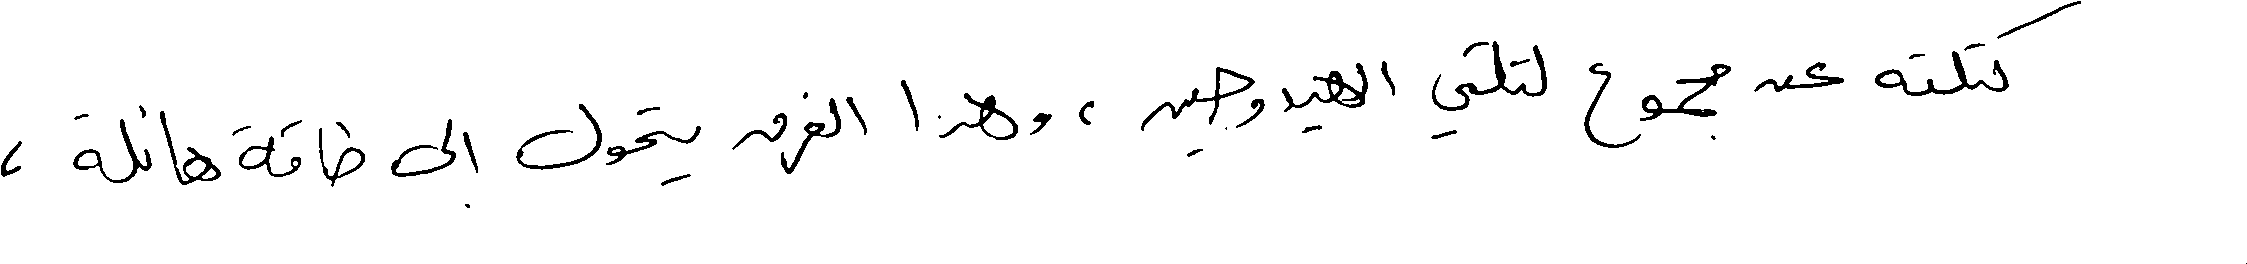 كتلته عن مجموع كتلتي الهيدروجين ، وهذا الفرق يتحول إلى طاقة هائلة ،